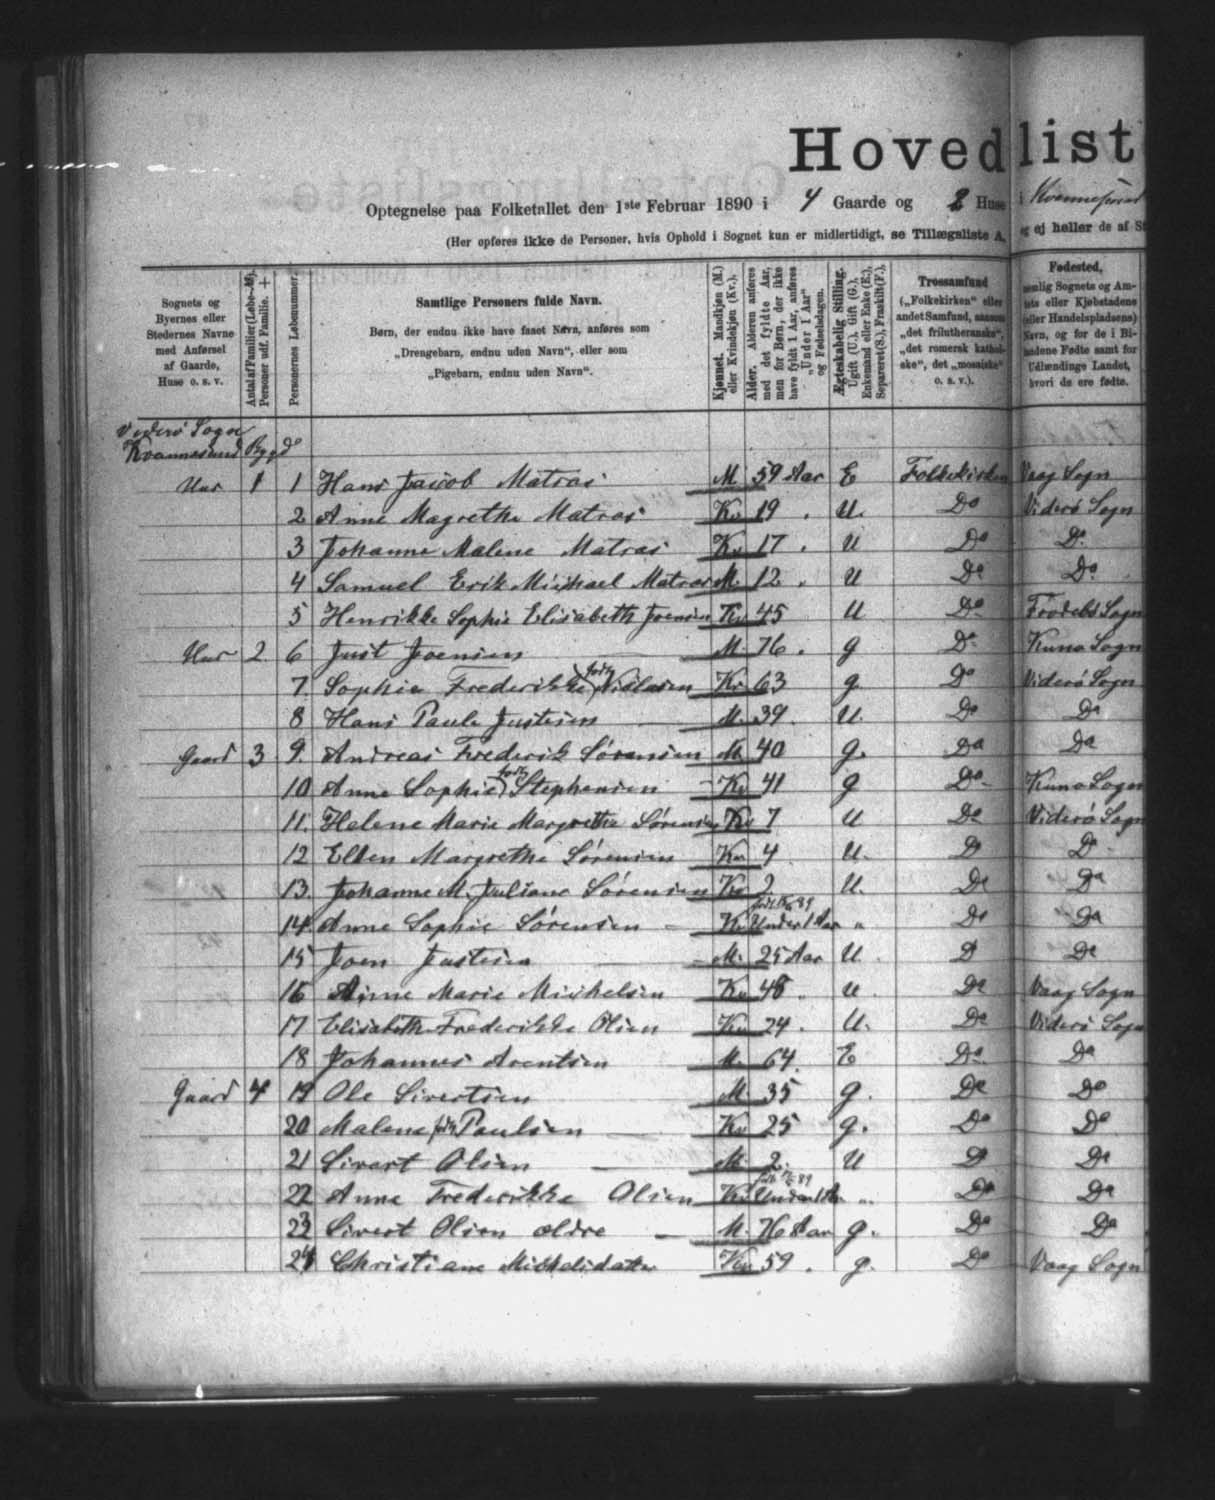 Hovedlist
Optegnelse paa Folketallet den 1ste Februar 1890 i 4 Gaarde og 2 Huse i
(Her opføres ikke de Personer, hvis Ophold i Sognet kun er midlertidigt, se Tillægsliste A, og ej heller de af St
Sognets og Byernes eller Stedernes Navne med Anførsel af Gaarde, Huse o. s. v.
Antal af Familier (Løbe-№). Personer udf. Familie. +
Personernes Løbenummer.
Samtlige Personers fulde Navn.
Børn, der endnu ikke have faaet Navn, anføres som
„Drengebarn, endnu uden Navn“, eller som
„Pigebarn, endnu uden Navn“.
Kjønnet. Mandkjøn (M.) eller Kvindekjøn (Kv.).
Alder. Alderen anføres med det fyldte Aar, men for Børn, der ikke have fyldt 1 Aar, anføres „Under 1 Aar“ og Fødselsdagen.
Ægteskabelig Stilling. Ugift (U.), Gift (G.), Enkemand eller Enke (E.), Separeret (S.), Fraskilt (F.).
Trossamfund („Folkekirken“ eller andet Samfund, saasom „det frilutheranske“, „det romersk katholske“, det „mosaiske“ o. s. v.).
Fødested,
nemlig Sognets og Am-
tets eller Kjøbstadens
(eller Handelspladsens)
Navn, og for de i Bi-
landene Fødte samt for
Udlændinge Landet,
hvori de ere fødte.
Viderø Sogn
Kvannesund Bygd
Hus 1 1 Hans Jacob Matras M. 59 Aar E Folkekirken Vaag Sogn
2 Anne Magrethe Matras Kv 19 U. Do Viderø Sogn
3 Johanne Malene Matras Kv 17 U Do Do
4 Samuel Erik Michael Matras M. 12 U Do Do
5 Henrikke Sophie Elisabeth Joensen Kv 45 U Do Frodebø Sogn
Hus 2 6 Just Joensen M. 76 g Do Kunø Sogn
7 Sophie Frederikke født Nielsen Kv 63 g Do Viderø Sogn
8 Hans Paule Justesen M. 39 U. Do Do
Gaard 3 9. Andreas Frederik Sørensen M 40 g. Do Do
10 Anne Sophie født Stephensen Kv 41 g Do Kunø Sogn
11. Helene Marie Margrethe Sørensen Kv 7 U Do Viderø Sogn
12 Ellen Margrethe Sørensen Kv 4 U. Do Do
13. Johanne M. Juliane Sørensen Kv 2 U. Do Do
14 Anne Sophie Sørensen Kv Under 1 Aar „ Do Do
15 Joen Justesen M. 25 Aar U Do Do
16 Anne Marie Mickelsen Kv 48 U Do Vaag Sogn
17 Elisabeth Frederikke Olsen Kv 24 U. Do Viderø Sogn
18 Johannes Arentsen M. 64 E Do Do
Gaard 4 19 Ole Sivertsen M. 35 g. Do Do
20 Malene født Paulsen Kv 25 g. Do Do
21 Sivert Olsen M. 2 U Do Do
22 Anna Frederikke Olsen Kv Under 1 Aar „ Do Do
23 Sivert Olsen ældre M. 76 Aar g. Do Do
24 Christiane Mickelsdatter Kv 59 g. Do Vaag Sogn